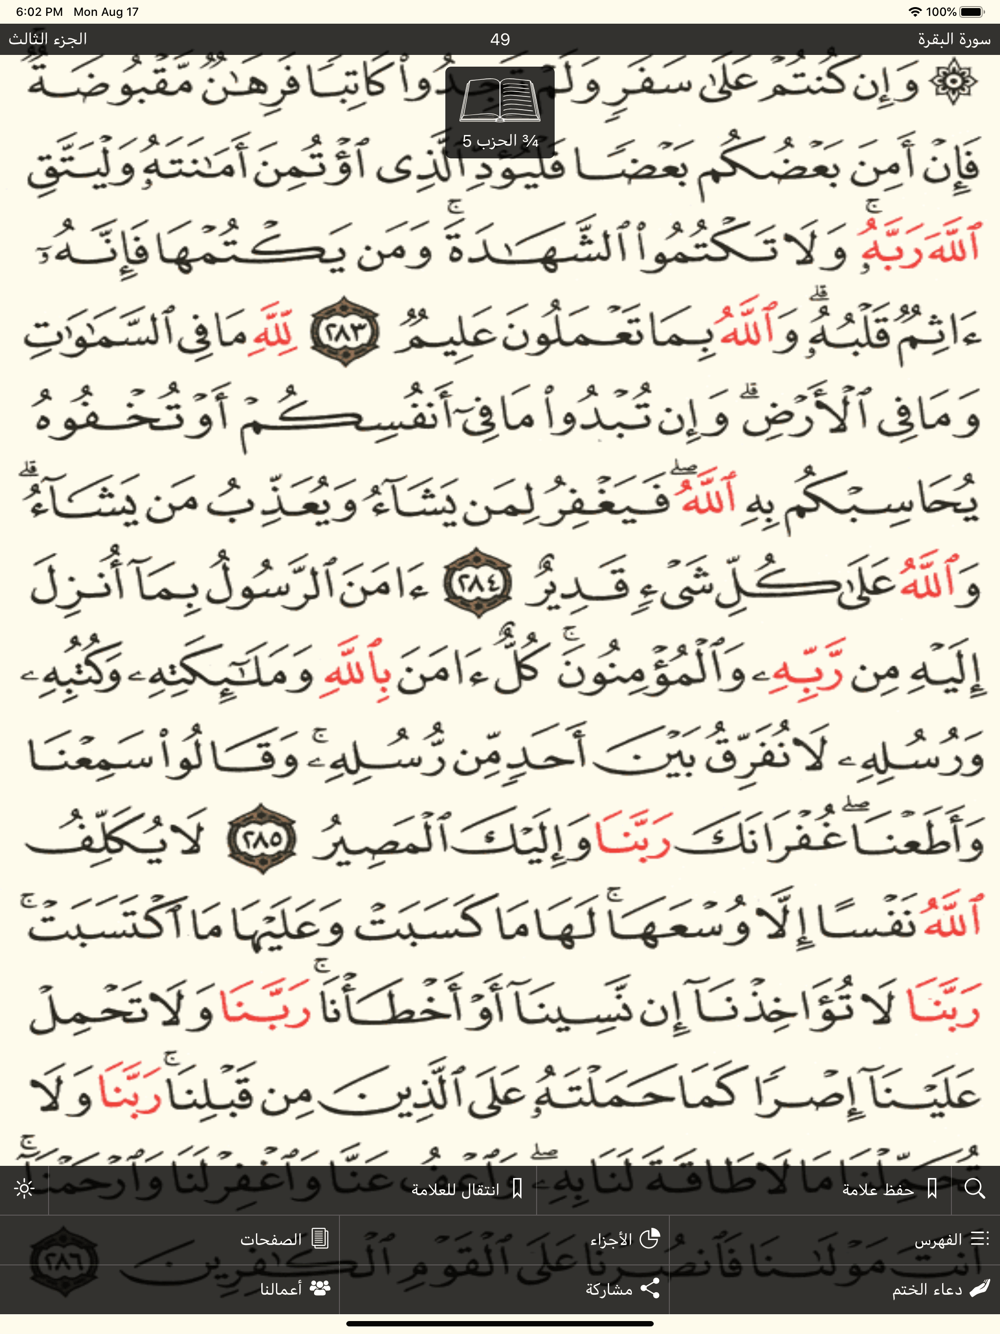 6:02 PM Mon Aug 17 100%
سورة البقرة 49 الجزء الثالث
¾ الحزب 5
وَإِن كُنتُمْ عَلَىٰ سَفَرٍ وَلَمْ تَجِدُوا۟ كَاتِبًا فَرِهَـٰنٌ مَّقْبُوضَةٌ
فَإِنْ أَمِنَ بَعْضُكُم بَعْضًا فَلْيُؤَدِّ ٱلَّذِى ٱؤْتُمِنَ أَمَـٰنَتَهُۥ وَلْيَتَّقِ
ٱللَّهَ رَبَّهُۥ ۚ وَلَا تَكْتُمُوا۟ ٱلشَّهَـٰدَةَ ۚ وَمَن يَكْتُمْهَا فَإِنَّهُۥٓ
ءَاثِمٌ قَلْبُهُۥ ۗ وَٱللَّهُ بِمَا تَعْمَلُونَ عَلِيمٌ ٢٨٣ لِّلَّهِ مَا فِى ٱلسَّمَـٰوَٰتِ
وَمَا فِى ٱلْأَرْضِ ۗ وَإِن تُبْدُوا۟ مَا فِىٓ أَنفُسِكُمْ أَوْ تُخْفُوهُ
يُحَاسِبْكُم بِهِ ٱللَّهُ ۖ فَيَغْفِرُ لِمَن يَشَآءُ وَيُعَذِّبُ مَن يَشَآءُ ۗ
وَٱللَّهُ عَلَىٰ كُلِّ شَىْءٍ قَدِيرٌ ٢٨٤ ءَامَنَ ٱلرَّسُولُ بِمَآ أُنزِلَ
إِلَيْهِ مِن رَّبِّهِۦ وَٱلْمُؤْمِنُونَ ۚ كُلٌّ ءَامَنَ بِٱللَّهِ وَمَلَـٰٓئِكَتِهِۦ وَكُتُبِهِۦ
وَرُسُلِهِۦ لَا نُفَرِّقُ بَيْنَ أَحَدٍ مِّن رُّسُلِهِۦ ۚ وَقَالُوا۟ سَمِعْنَا
وَأَطَعْنَا ۖ غُفْرَانَكَ رَبَّنَا وَإِلَيْكَ ٱلْمَصِيرُ ٢٨٥ لَا يُكَلِّفُ
ٱللَّهُ نَفْسًا إِلَّا وُسْعَهَا ۚ لَهَا مَا كَسَبَتْ وَعَلَيْهَا مَا ٱكْتَسَبَتْ ۗ
رَبَّنَا لَا تُؤَاخِذْنَآ إِن نَّسِينَآ أَوْ أَخْطَأْنَا ۚ رَبَّنَا وَلَا تَحْمِلْ
عَلَيْنَآ إِصْرًا كَمَا حَمَلْتَهُۥ عَلَى ٱلَّذِينَ مِن قَبْلِنَا ۚ رَبَّنَا وَلَا
تُحَمِّلْنَا مَا لَا طَاقَةَ لَنَا بِهِۦ ۖ وَٱعْفُ عَنَّا وَٱغْفِرْ لَنَا وَٱرْحَمْنَآ ۚ
حفظ علامة انتقال للعلامة
أَنتَ مَوْلَىٰنَا فَٱنصُرْنَا عَلَى ٱلْقَوْمِ ٱلْكَـٰفِرِينَ ٢٨٦
الفهرس الأجزاء الصفحات
دعاء الختم مشاركة أعمالنا